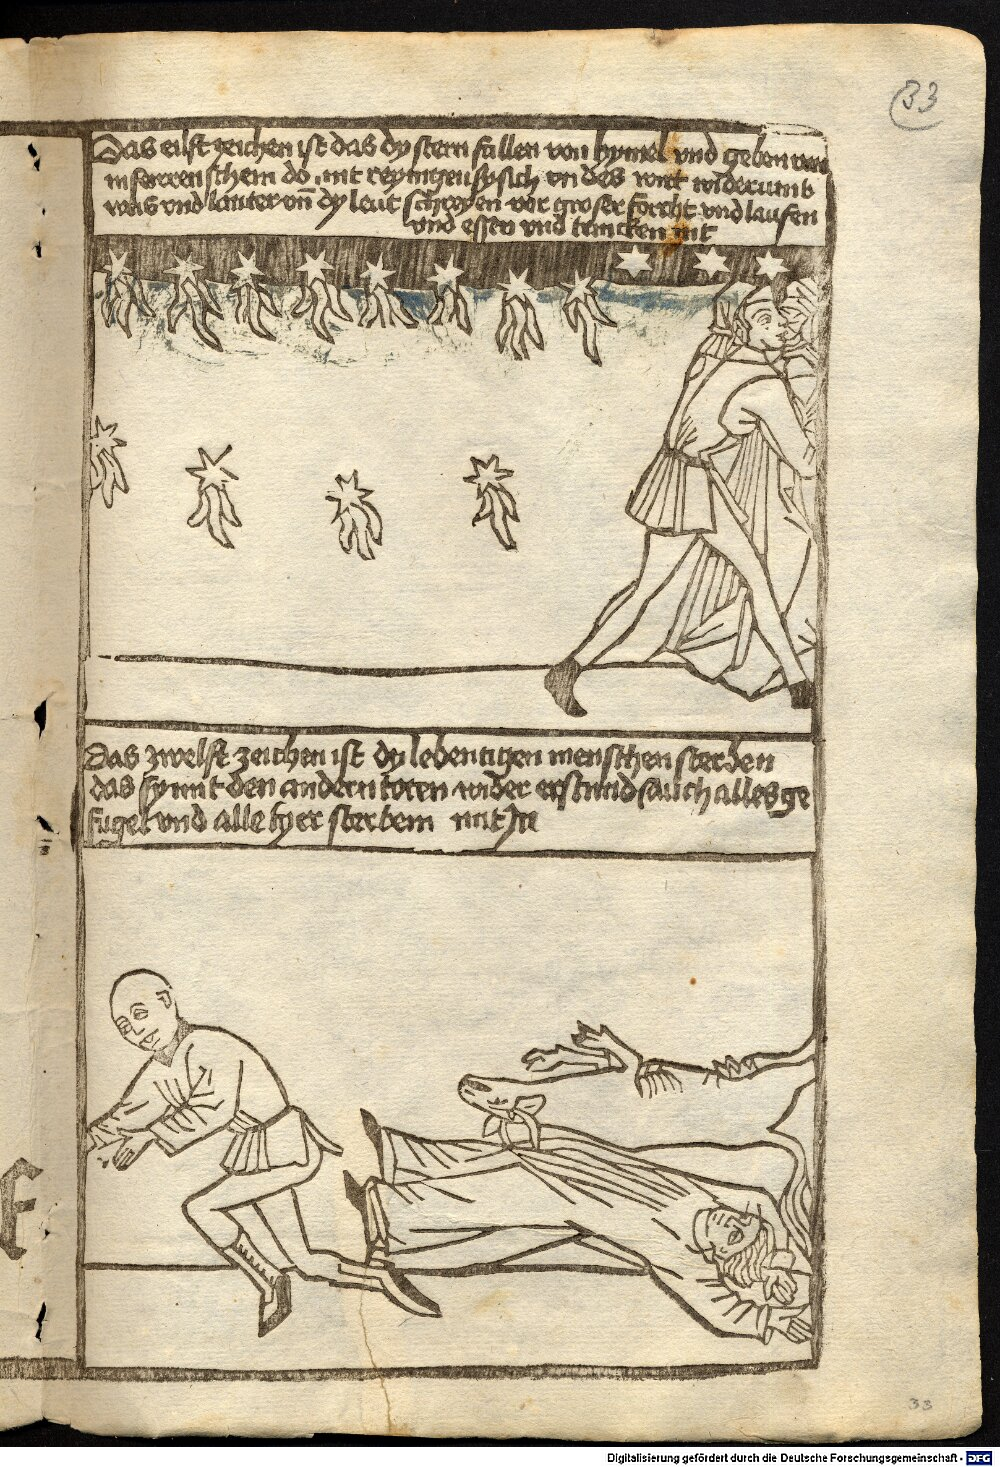 33
Das eilft zeichen ist das dy stern fallen von hymel vnd geben von
in schein do mit reynigen sy sich vn des wirt widerumb
was vnd lauter vn̄ dy leut schreyen vor groser forcht vnd laufen
vnd essen vnd trincken nit
Das zwelft zeichen ist dy lebentigen menschen sterben
das sy mit den andern toten wider erstund auch alles ge
fugel vnd alle tyer sterbem mit In
33
Digitalisierung gefördert durch die Deutsche Forschungsgemeinschaft - DFG